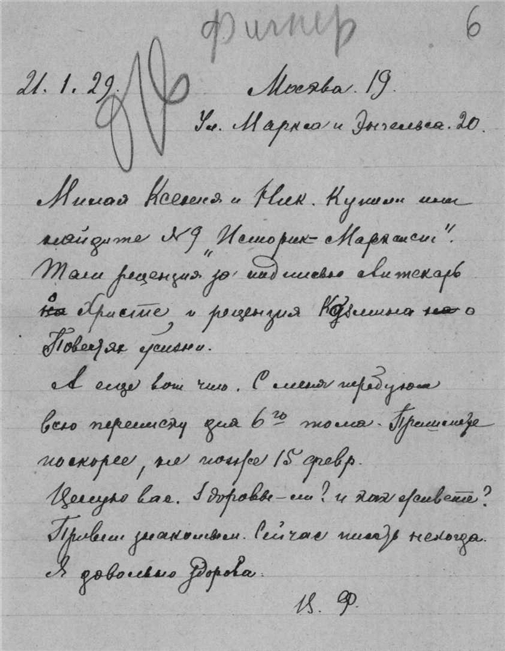 Фигнер 6
21.1.29. Москва. 19.
Ул. Маркса и Энгельса. 20.
Милая Ксения и Ник. Купили или
найдите №9 „Историк-Марксист".
Там рецензия за подписью
на Христе, и рецензия на о
Повестях жизни.
А еще вот что. С меня требуют
всю переписку для 6го тома. Пришлите
поскорее, не позже 15 февр.
Целую вас. Здоровы-ли? и как живете?
Привет знакомым. Сейчас писать некогда.
Я довольно здорова.
В. Ф.